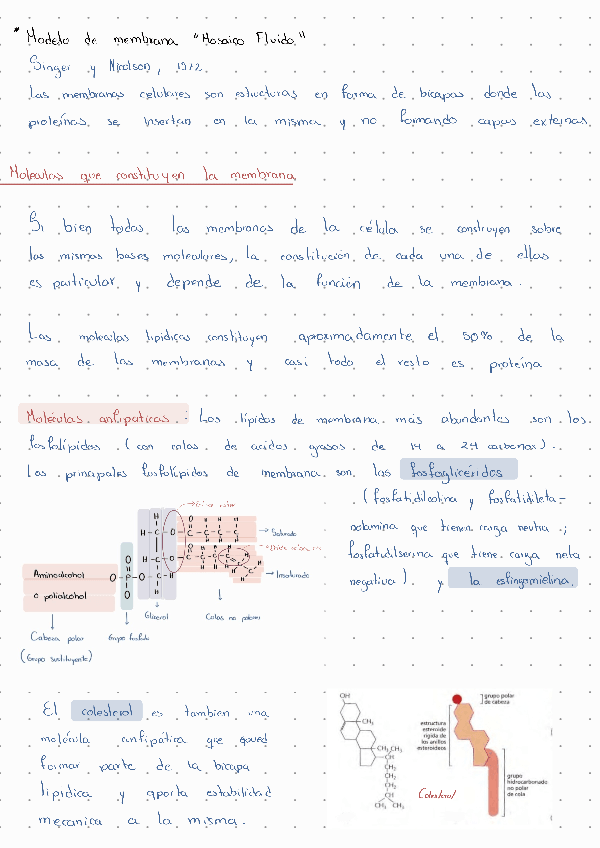 * Modelo de membrana "Mosaico Fluido"
Singer y Nicolson, 1972.
Las membranas celulares son estructuras en forma de bicapas donde las
proteínas se insertan en la misma y no formando capas externas
Moleculas que constituyen la membrana
Si bien todas las membranas de la célula se construyen sobre
las mismas bases moleculares, la constitución de cada una de ellas
es particular y depende de la función de la membrana.
Las moleculas lipídicas constituyen aproximadamente el 50% de la
masa de las membranas y casi todo el resto es proteína
Moléculas anfipaticas: Los lípidos de membrana más abundantes son los
fosfolípidos (con colas de acidos grasos de 14 a 24 carbonos).
Los principales fosfolípidos de membrana son los fosfoglicéridos
(fosfatidilcolina y fosfatidileta-
nolamina que tienen carga neutra ;
fosfatidilserina que tiene carga neta
negativa) y la esfingomielina
Saturado
Insaturado
Aminoalcohol
o polialcohol
O
O-P-O
O
Glicerol
Colas no polares
Cabeza polar
Grupo fosfato
(Grupo sustituyente)
El colesterol es tambien una
molécula anfipática que pued
formar parte de la bicapa
lipidica y aporta estabilidad
mecanica a la misma.
OH
CH₃
CH₃ CH₃
CH
CH₂
CH₂
CH₂
CH
CH₃ CH₃
grupo polar
de cabeza
estructura
esteroide
rígida de
los anillos
esteroideos
grupo
hidrocarbonado
no polar
de cola
Colesterol